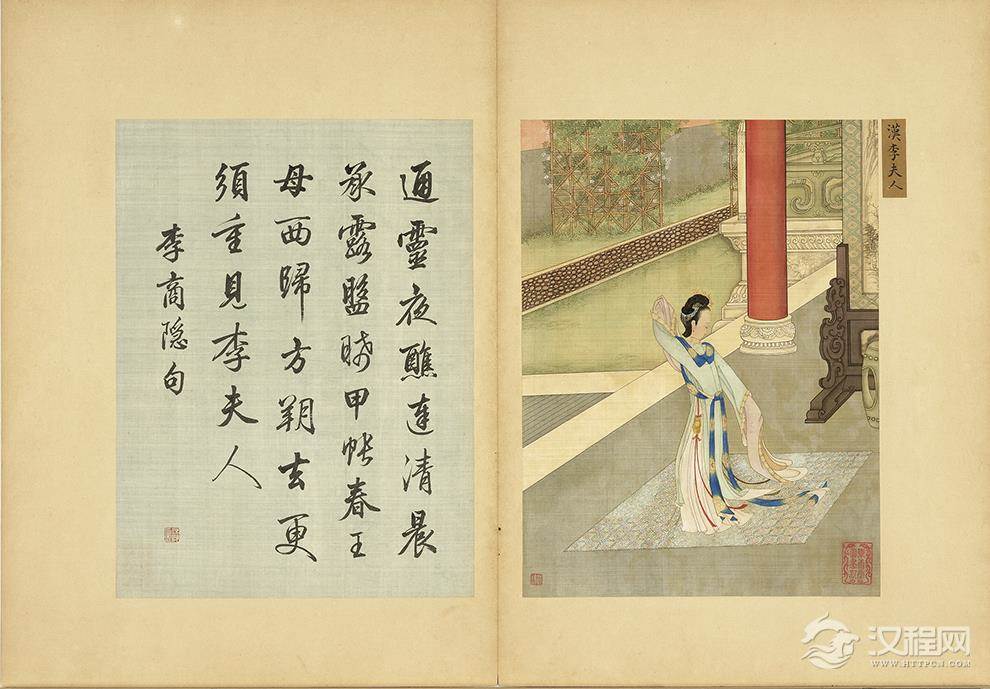 漢李夫人
通靈夜醮達清晨
承露盤晞甲帐春王
母西歸方朔去更
須重見李夫人
李商隐句
汉程网
WWW.HTTPCN.COM